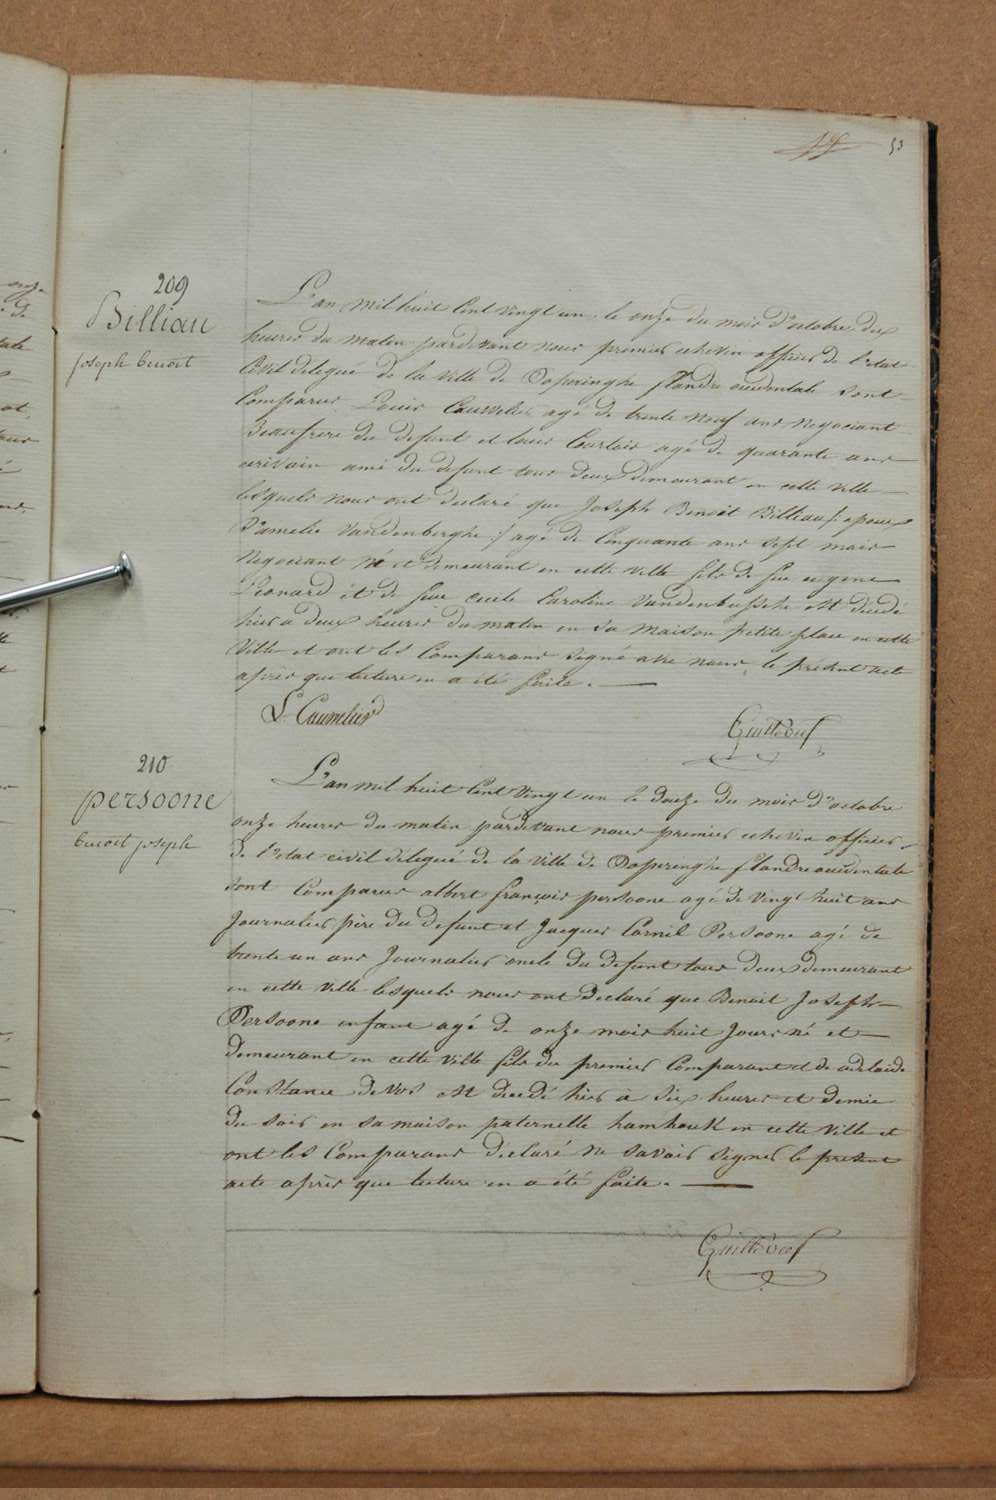 53
209
Billiau
joseph benoit
L'an mil huit cent vingt un, le onze du mois d'octobre dix
heures du matin pardevant nous premier echevin officier de l'etat
Civil délegué de la ville de Poperinghe flandre occidentale sont
Comparus Louis Cauwelier agé de trente neuf ans negociant
Beaufrere du defunt et louis Carlier agé de quarante ans
ecrivain ami du defunt tous deux demeurant en cette ville
lesquels nous ont declaré que Joseph Benoit Billiau /: epoux
D'amelie Vandenberghe :/ agé de Cinquante ans sept mois
Negociant né et demeurant en cette ville fils de feu eugene
Leonard et de feue cecile Caroline Vandenbussche est décédé
hier à deux heures du matin en sa maison petite place en cette
Ville et ont les Comparans signé avec nous le présent acte
après que lecture en a été faite.
L. Cauwelier
210
persoone
benoit joseph
L'an mil huit Cent Vingt un le douze du mois d'octobre
onze heures du matin pardevant nous premier echevin officier
de l'etat civil délegué de la ville de Poperinghe flandre occidentale
sont Comparus albert françois persoone agé de vingt huit ans
Journalier père du defunt et Jacques Cornil Persoone agé de
trente un ans Journalier oncle du defunt tous deux demeurant
en cette ville lesquels nous ont declaré que Benoit Joseph
Persoone enfant agé de onze mois huit jours né et
demeurant en cette ville fils du premier Comparant et de adelaide
Constance devos est decedé hier à six heures et demie
du soir en sa maison paternelle hamhouk en cette ville et
ont les Comparans déclaré ne savoir signer le présent
acte après que lecture en a été faite.